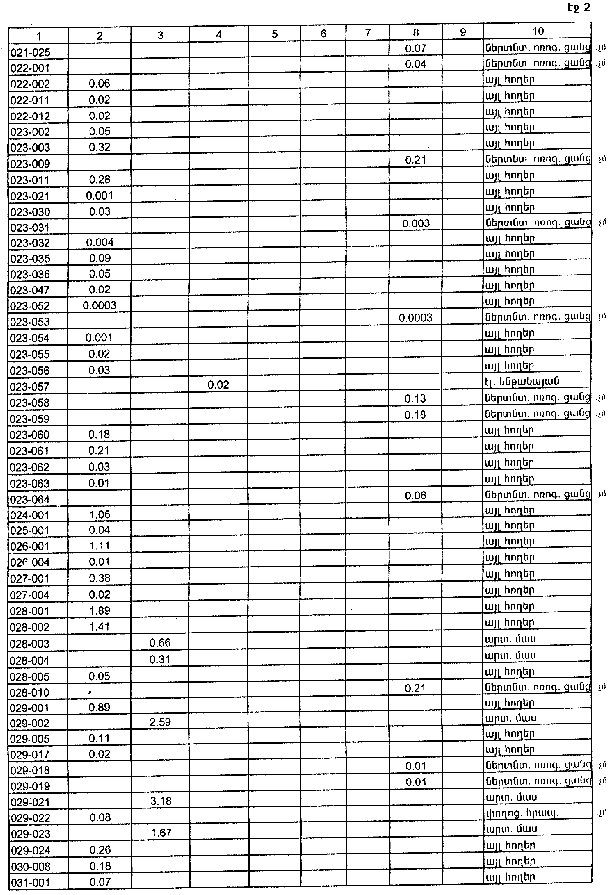 Էջ 2
1 2 3 4 5 6 7 8 9 10
021-025 0.07 ներտնտ. ոռոգ. ցանց
022-001 0.04 ներտնտ. ոռոգ. ցանց
022-002 0.06 այլ հողեր
022-011 0.02 այլ հողեր
022-012 0.02 այլ հողեր
023-002 0.05 այլ հողեր
023-003 0.32 այլ հողեր
023-009 0.21 ներտնտ. ոռոգ. ցանց
023-011 0.28 այլ հողեր
023-021 0.001 այլ հողեր
023-030 0.03 այլ հողեր
023-031 0.003 ներտնտ. ոռոգ. ցանց
023-032 0.004 այլ հողեր
023-035 0.09 այլ հողեր
023-036 0.05 այլ հողեր
023-047 0.02 այլ հողեր
023-052 0.0003 այլ հողեր
023-053 0.0003 ներտնտ. ոռոգ. ցանց
023-054 0.001 այլ հողեր
023-055 0.02 այլ հողեր
023-056 0.03 այլ հողեր
023-057 0.02 էլ. ենթակայան
023-058 0.13 ներտնտ. ոռոգ. ցանց
023-059 0.19 ներտնտ. ոռոգ. ցանց
023-060 0.18 այլ հողեր
023-061 0.21 այլ հողեր
023-062 0.03 այլ հողեր
023-063 0.01 այլ հողեր
023-064 0.06 ներտնտ. ոռոգ. ցանց
024-001 1.06 այլ հողեր
025-001 0.04 այլ հողեր
026-001 1.11 այլ հողեր
026-004 0.01 այլ հողեր
027-001 0.38 այլ հողեր
027-004 0.02 այլ հողեր
028-001 1.89 այլ հողեր
028-002 1.41 այլ հողեր
028-003 0.66 արտ. մաս
028-004 0.31 արտ. մաս
028-005 0.05 այլ հողեր
028-010 0.21 ներտնտ. ոռոգ. ցանց
029-001 0.89 այլ հողեր
029-002 2.59 արտ. մաս
029-005 0.11 այլ հողեր
029-017 0.02 այլ հողեր
029-018 0.01 ներտնտ. ոռոգ. ցանց
029-019 0.01 ներտնտ. ոռոգ. ցանց
029-021 3.18 արտ. մաս
029-022 0.08 փողոց. հրապ.
029-023 1.67 արտ. մաս
029-024 0.26 այլ հողեր
030-008 0.18 այլ հողեր
031-001 0.07 այլ հողեր